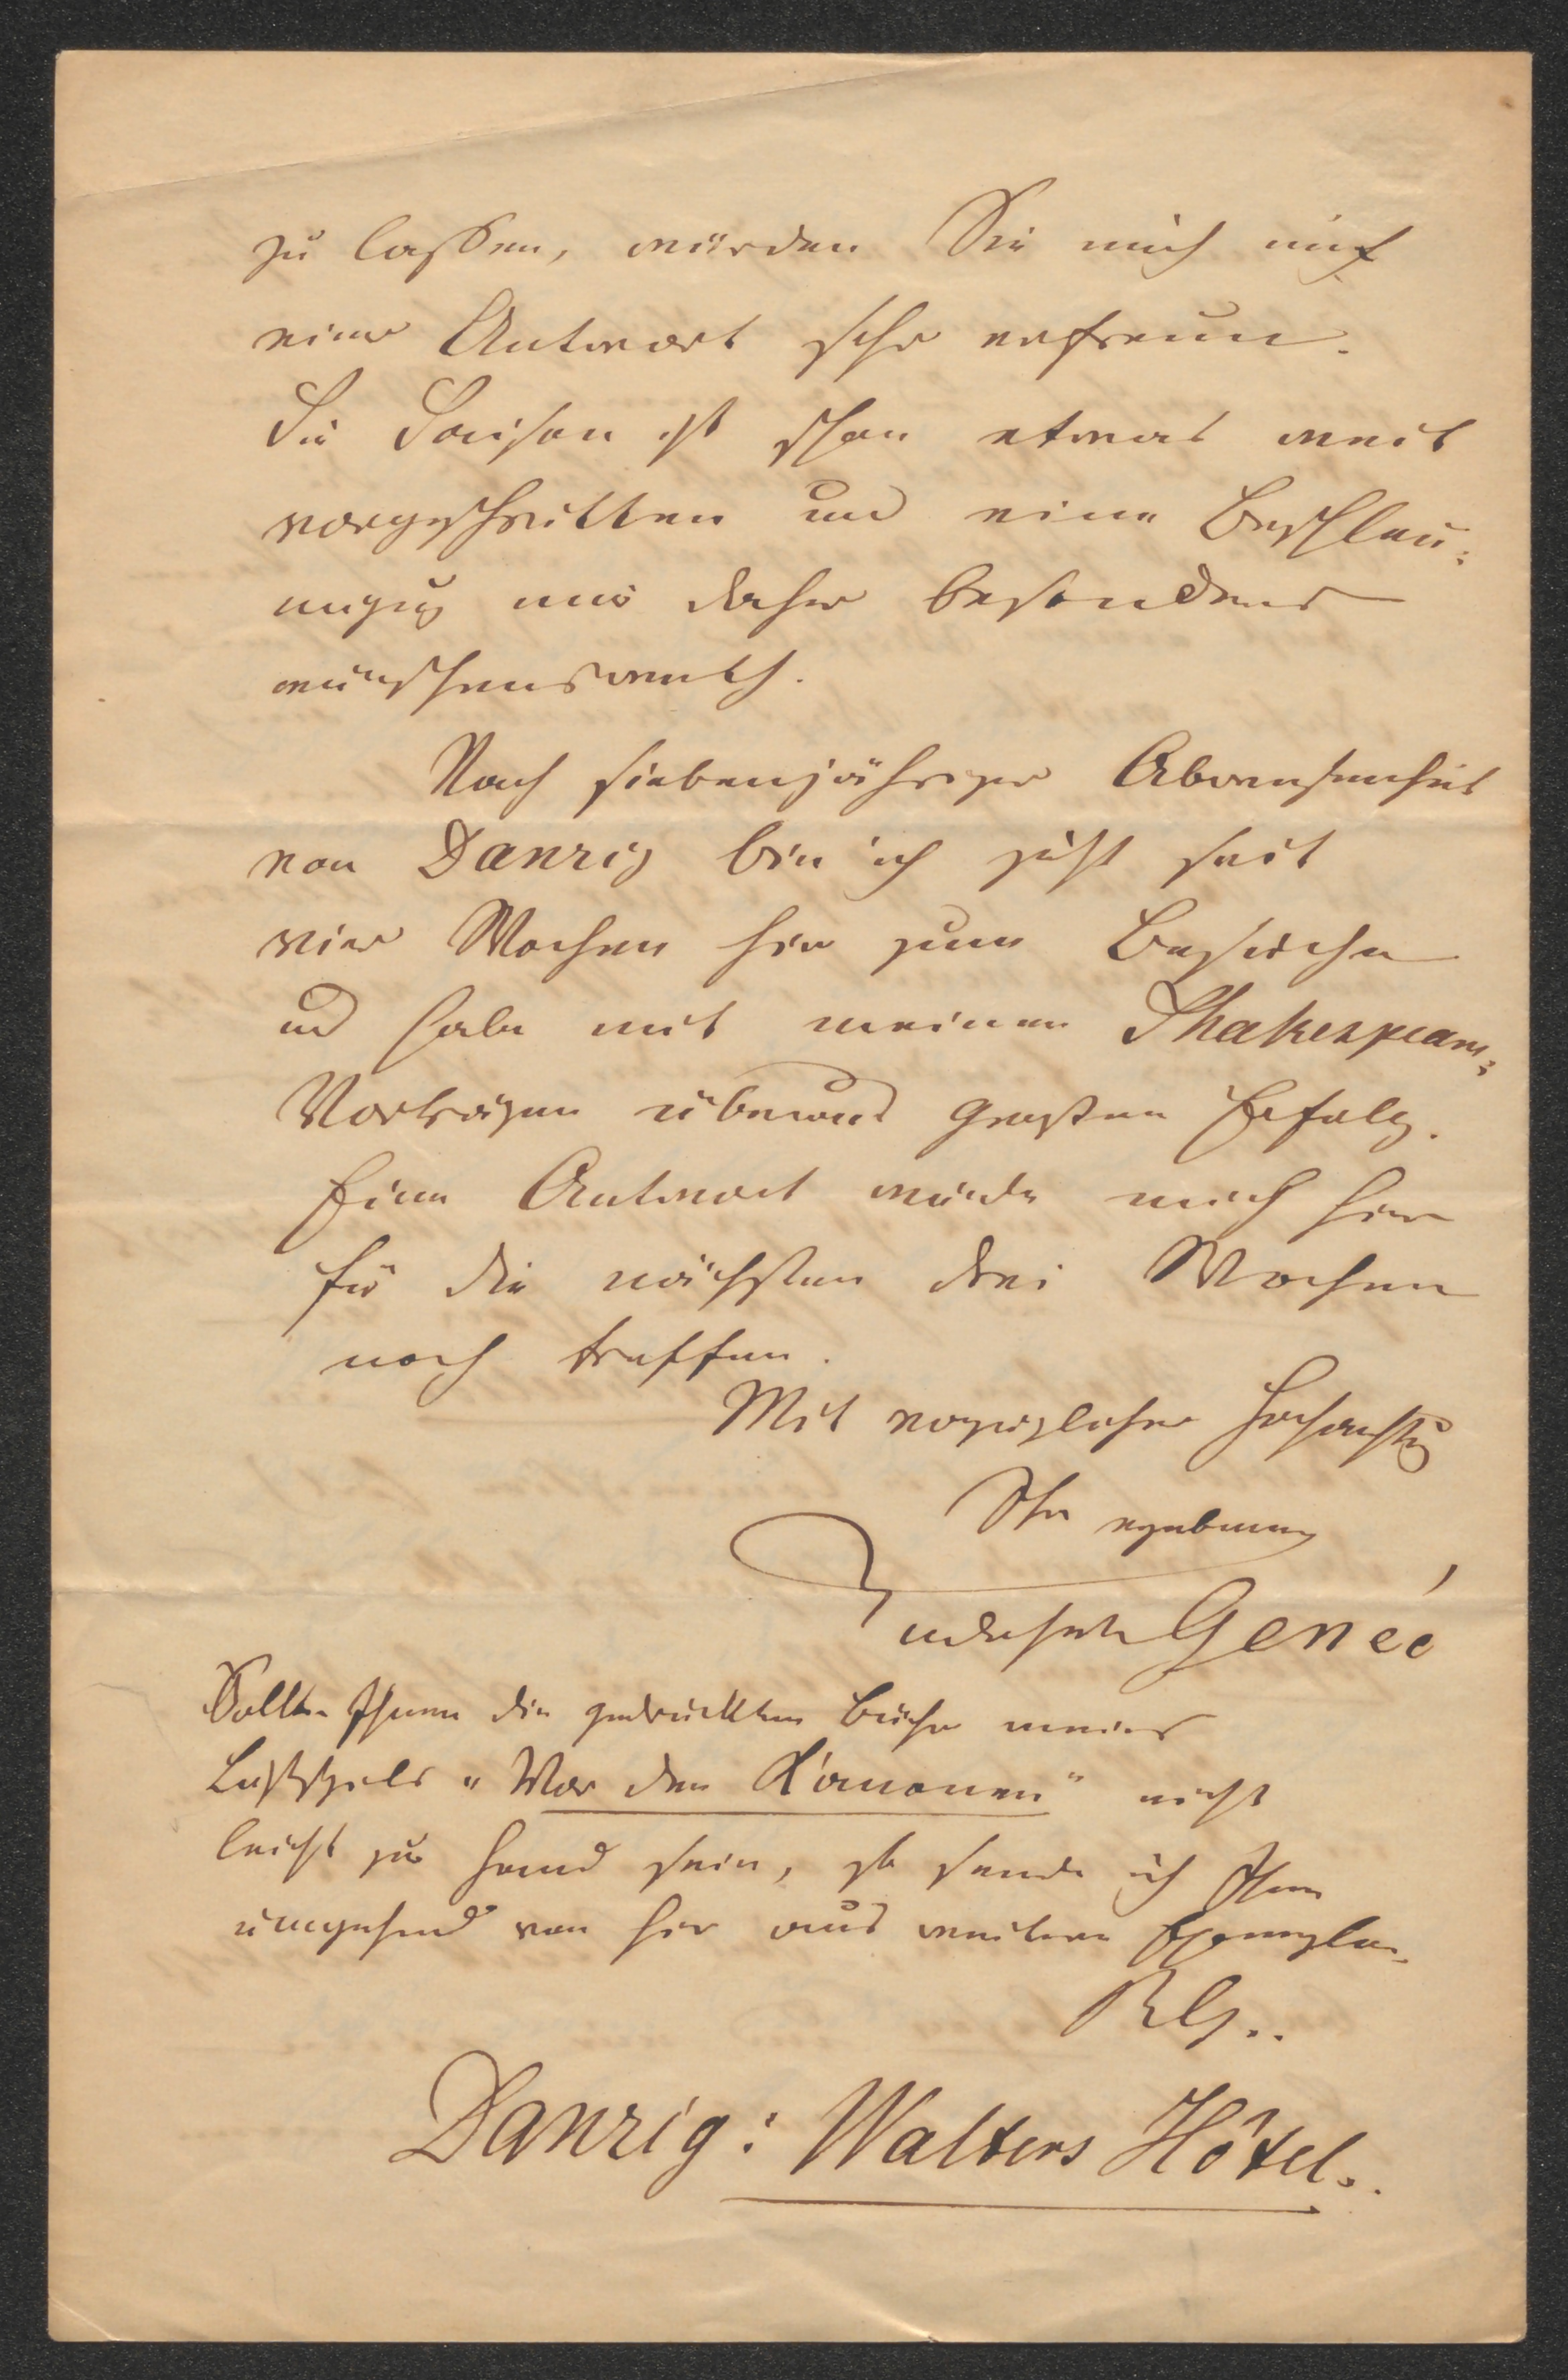 zu lassen, würden Sie mich mit
einer Antwort sehr erfreuen.
Die Saison ist schon etwas weit
vorgeschritten und eine Beschleu-
nigung mir daher besonders
wünschenswerth.
Nach siebenjähriger Abwesenheit
von Danzig bin ich jetzt seit
vier Wochen hier zum Besuche
und habe mit meinen Shakespeare-
Vorträgen überaus großen Erfolg.
Eine Antwort würde mich hier
für die nächsten drei Wochen
noch treffen.
Mit vorzüglicher Hochachtung
Ihr ergebener
Rudolph Genée
Sollten Ihnen die gedruckten Bücher meines
Lustspiels "Vor den Kanonen" nicht
leicht zur Hand sein, so sende ich Ihnen
umgehend von hier aus weitere Exemplare.
RG..
Danzig: Walters Hôtel.